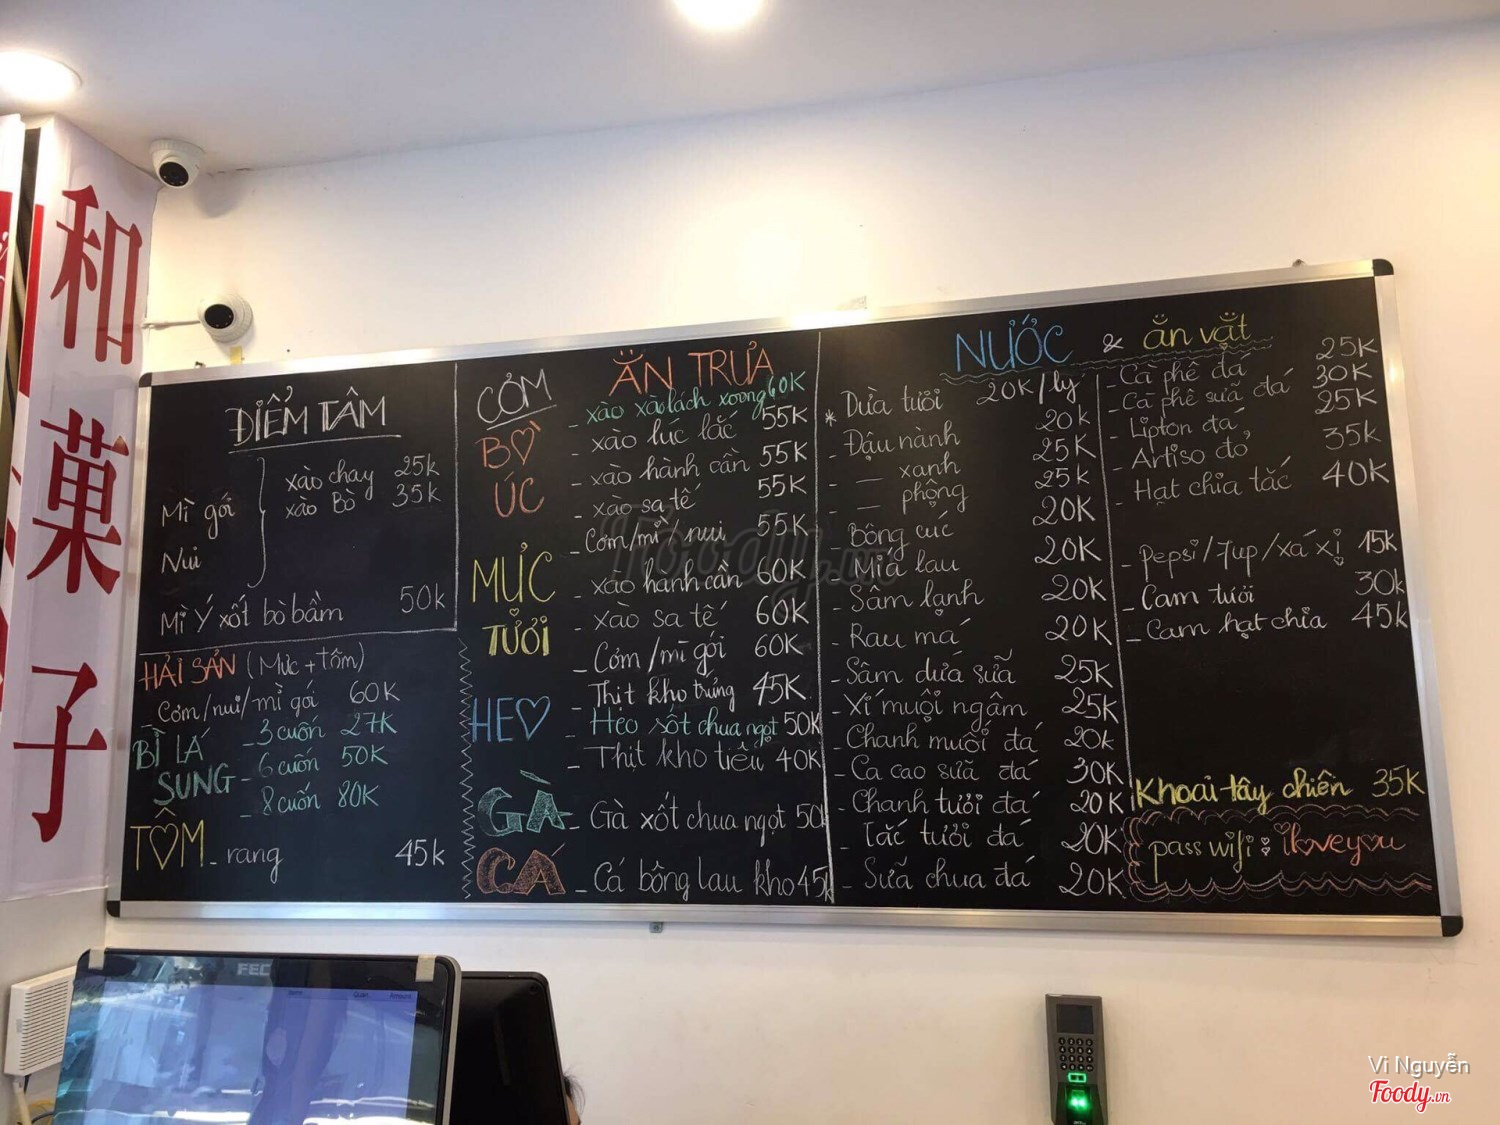 和菓子
ĐIỂM TÂM
Mì gói
Nui
xào chay 25k
xào Bò 35k
Mì Ý xốt bò bằm 50k
HẢI SẢN (Mực + tôm)
- Cơm/nui/mì gói 60K
BÌ LÁ SUNG
- 3 cuốn 27K
- 6 cuốn 50K
- 8 cuốn 80K
TÔM - rang 45k
CƠM ĂN TRƯA
BÒ ÚC
- xào xà lách xoong 60K
- xào lúc lắc 55K
- xào hành cần 55K
- xào sa tế 55K
- Cơm/mì nui 55K
MỰC TƯƠI
- xào hành cần 60K
- xào sa tế 60K
- Cơm/mì gói 60K
HEO
- Thịt kho trứng 45K
- Heo xốt chua ngọt 50K
- Thịt kho tiêu 40K
GÀ - Gà xốt chua ngọt 50k
CÁ - Cá bông lau kho 45k
NƯỚC & ăn vặt
* Dừa tươi 20K/ly
- Đậu nành 20k
- — xanh 25K
- — phộng 25k
- Bông cúc 20K
- Mía lau 20K
- Sâm lạnh 20K
- Rau má 20K
- Sâm dứa sữa 25K
- Xí muội ngâm 25K
- Chanh muối đá 20k
- Ca cao sữa đá 30K
- Chanh tươi đá 20K
- Tắc tươi đá 20K
- Sữa chua đá 20K
- Cà phê đá 25K
- Cà phê sữa đá 30K
- Lipton đá 25K
- Artiso đỏ 35k
- Hạt chia tắc 40K
- Pepsi/7up/xá xị 15K
- Cam tươi 30k
- Cam hạt chia 45k
Khoai tây chiên 35K
pass wifi: iloveyou
Foody.vn
FEC
Vi Nguyễn
Foody.vn